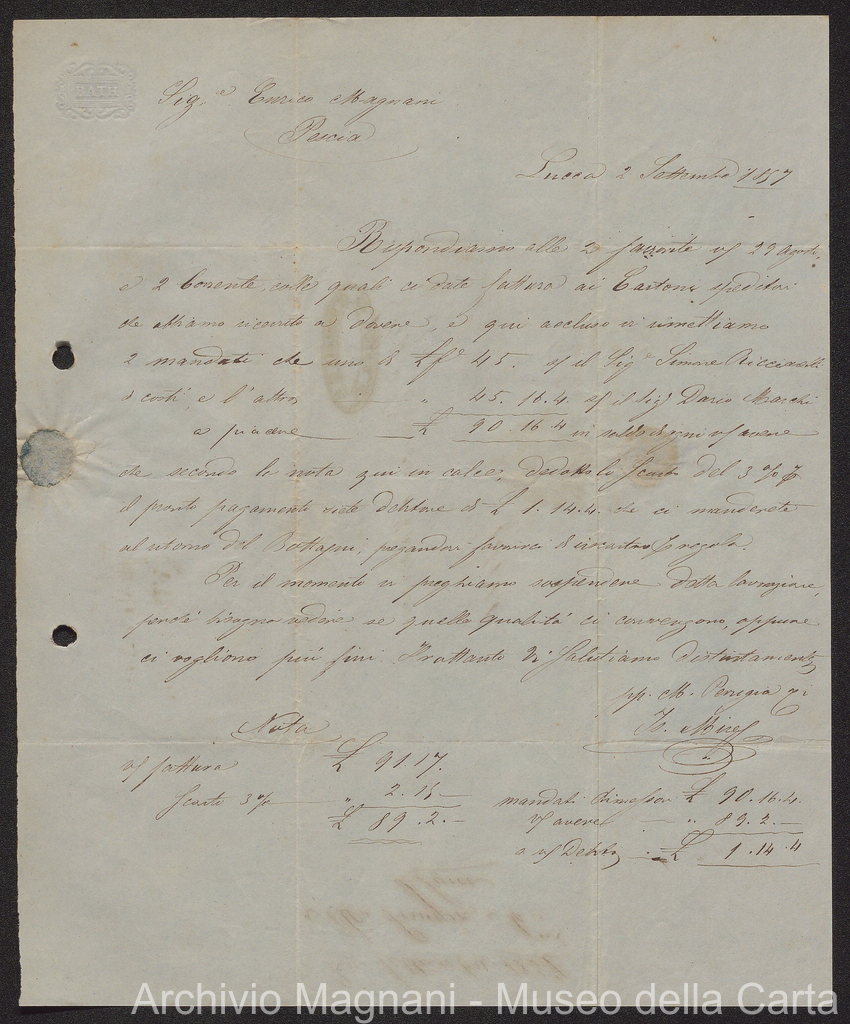 BATH
Sig.e Enrico Magnani
Pescia
Lucca 2 Settembre 1857
Rispondiamo alle 2 favorite vs 29 agosto,
e 2 Corrente, colle quali ci date fattura ai Cartoni speditoci
che abbiamo ricevuto a dovere, e qui accluso vi rimettiamo
2 mandati che uno di £ 45. s/ il Sig.e Simone Ricciarelli
di costì, e l'altro " 45.16.4 s/ il Sig. Dario Marchi
a piacere £ 90.16.4 in saldo di ogni vs avere
che secondo la nota qui in calce, dedotto lo scarto del 3 %
il pronto pagamento siete debitore di £ 1.14.4. che ci manderete
al ritorno del pregandovi favorirci di riscontro regola.
Per il momento vi preghiamo sospendere detta lavorazione,
perché bisogna vedere se quelle qualità ci convengono, oppure
ci vogliono più fini Frattanto Vi Salutiamo distintamente
pp. M. Perugia
Nota
vs fattura £ 91.17.
Scarto 3 % " 2.15.–
£ 89.2.–
mandati rimessovi £ 90.16.4.
vs avere " 89.2.–
a vs Debito £ 1.14.4
Archivio Magnani - Museo della Carta